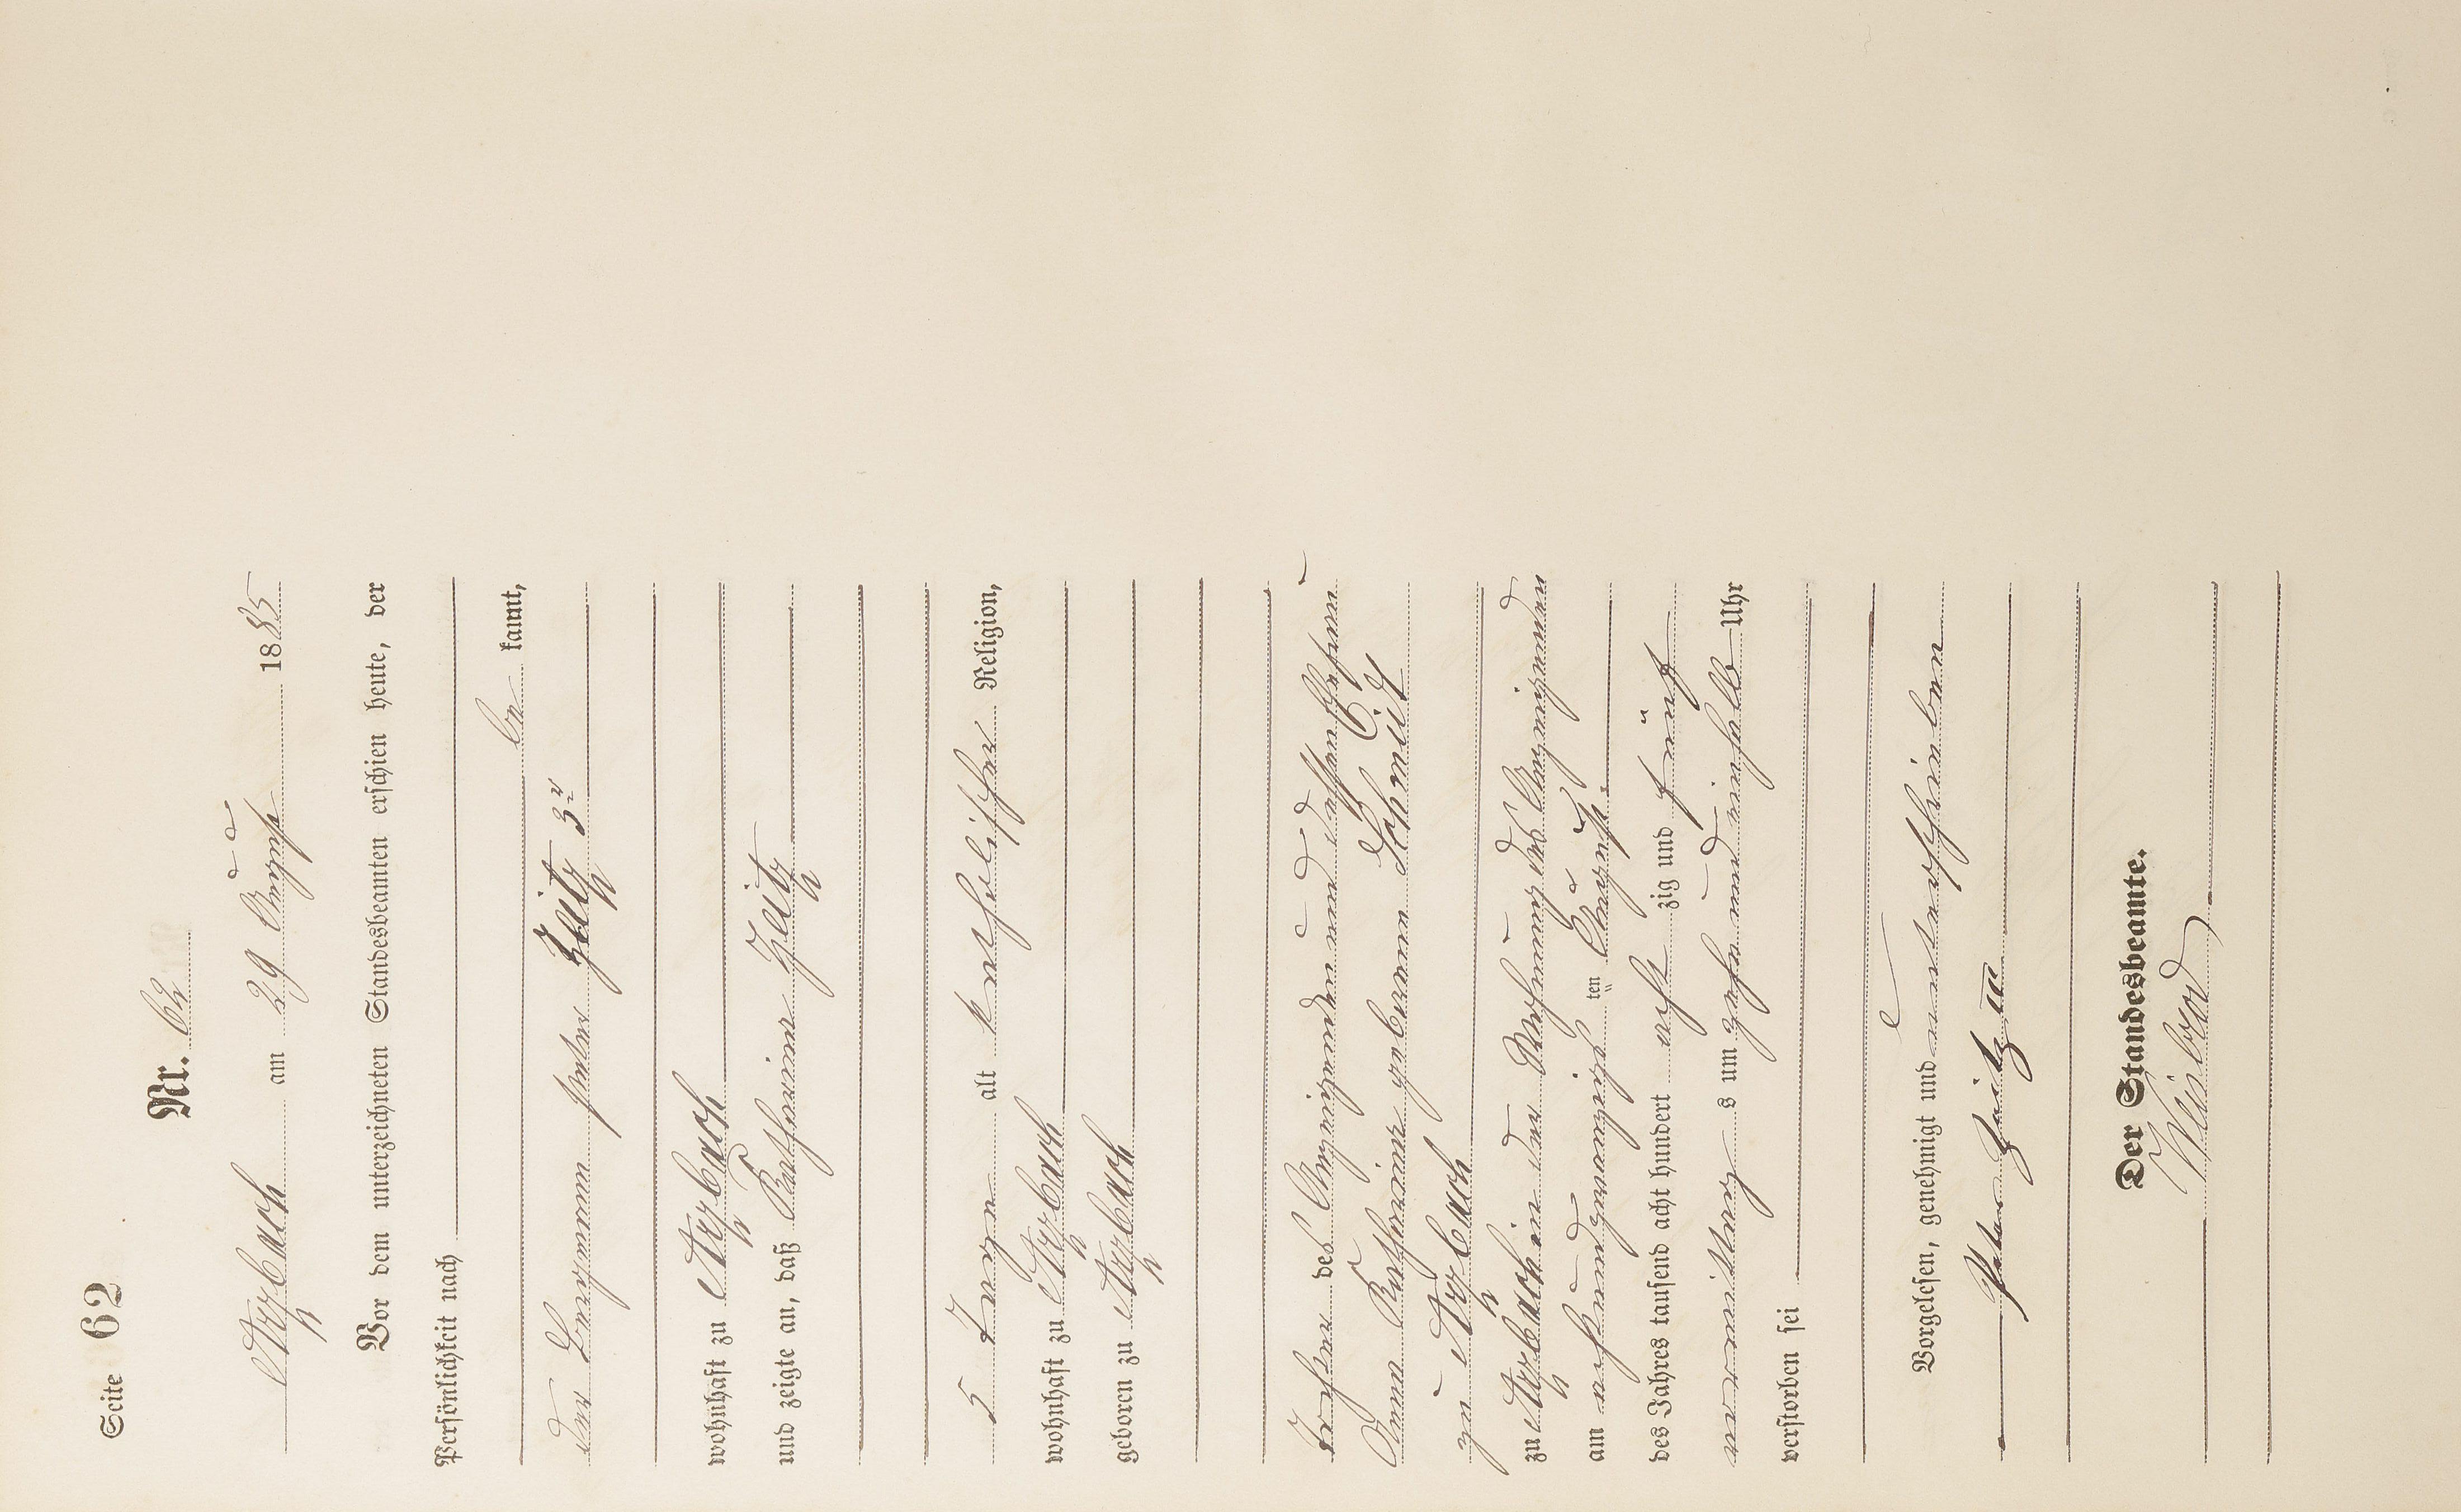 Seite 62
Nr. 62
Arzbach am 29 August 1885
Vor dem unterzeichneten Standesbeamten erschien heute, der
Persönlichkeit nach
be kannt,
der Bergmann Peter Zeitz 3r
wohnhaft zu Arzbach
und zeigte an, daß Katharina Zeitz
5 Tage alt katholischer Religion,
wohnhaft zu Arzbach
geboren zu Arzbach
Tochter des Anzeigenden und dessen Ehefrau
Anna Katharina geborene Schmidt
zu Arzbach
zu Arzbach in der Wohnung des Anzeigenden
am achtundzwanzigsten August
des Jahres tausend acht hundert acht zig und fünf
vormittags um zehn und einhalb Uhr
verstorben sei
Vorgelesen, genehmigt und unterschrieben
Peter Zeitz III
Der Standesbeamte.